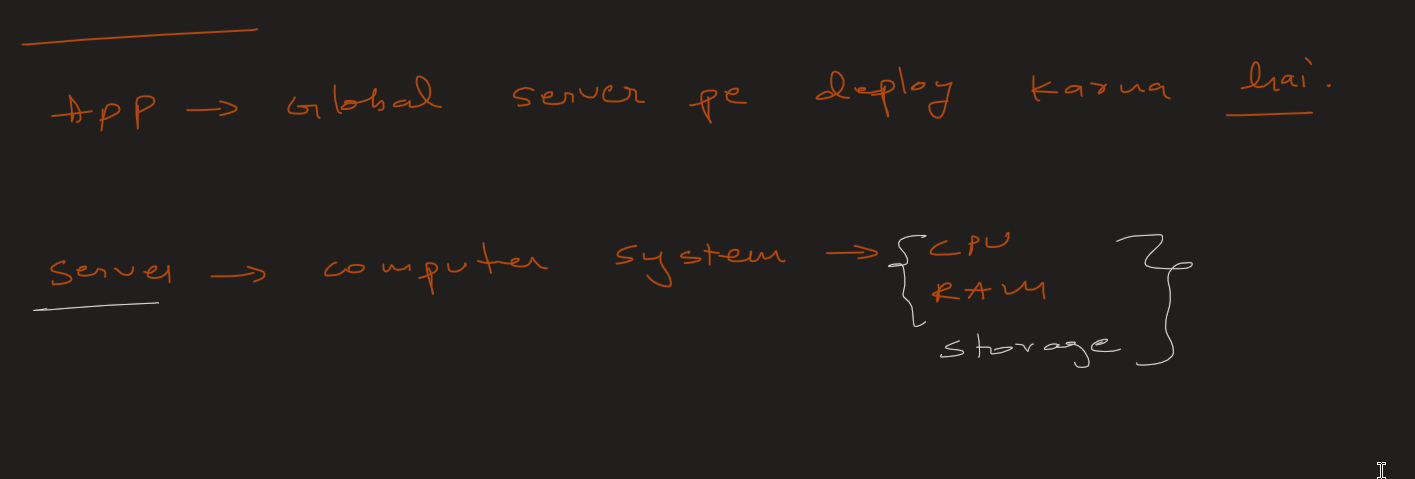 App → Global server pe deploy karna hai.
Server → computer system → { CPU
RAM
storage }